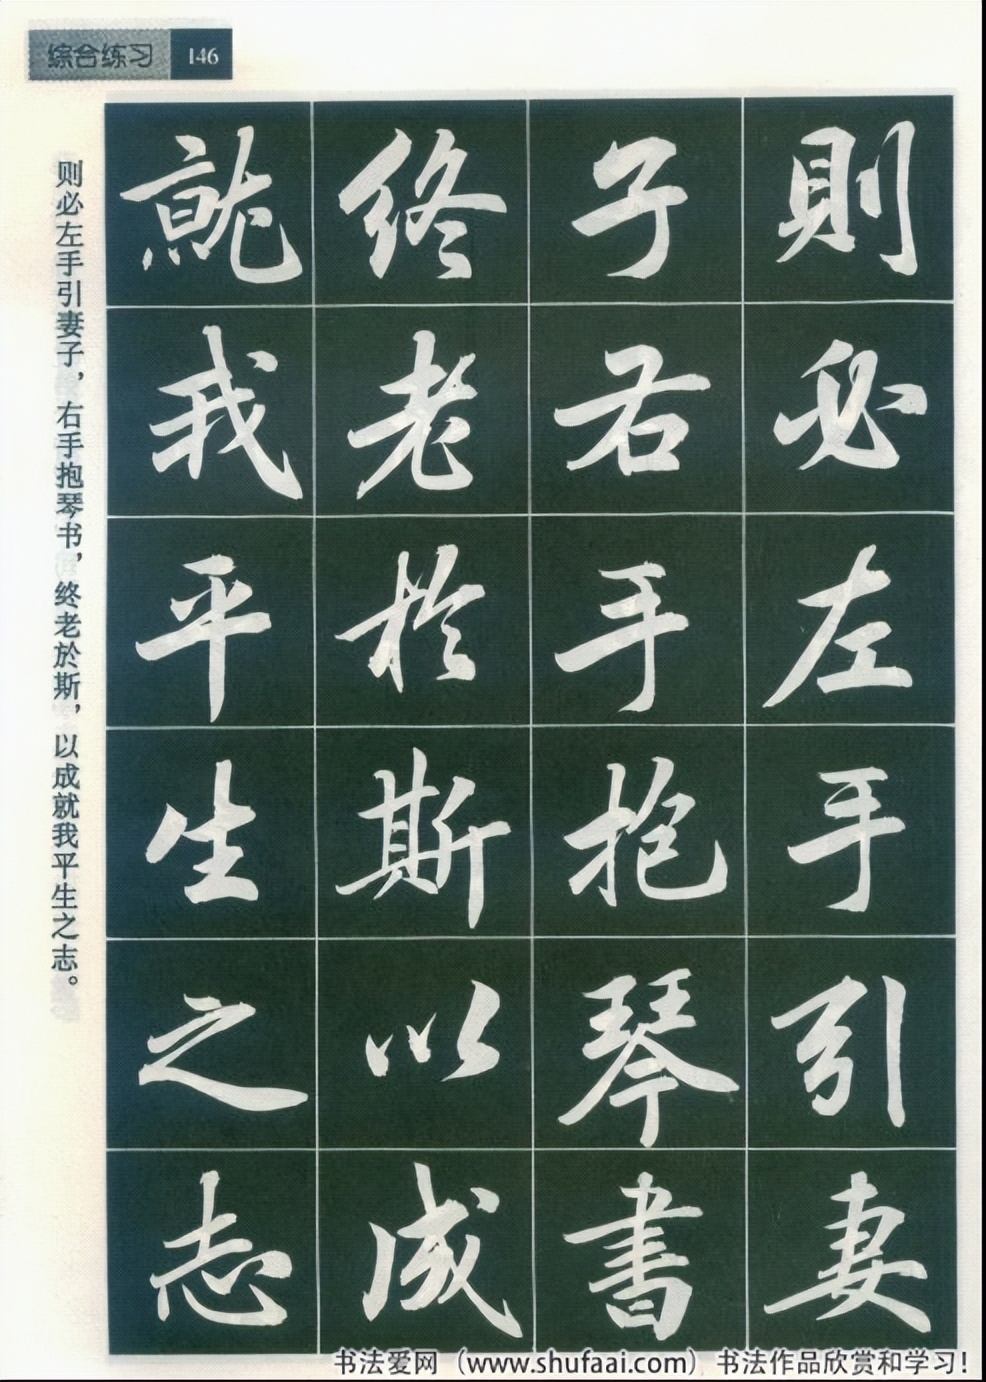 综合练习 146
則必左手引妻
子右手抱琴書
終老於斯以成
就我平生之志
则必左手引妻子，右手抱琴书，终老於斯，以成就我平生之志。
书法爱网（www.shufaai.com）书法作品欣赏和学习！